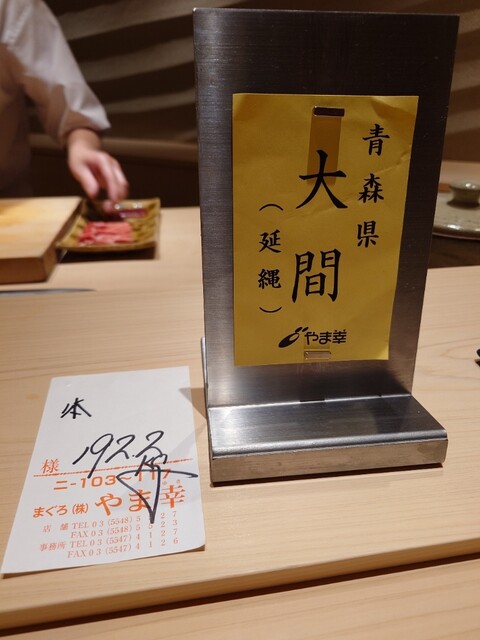 青森県
大間
（延縄）
やま幸
本
192.2
様
ニ-103
まぐろ（株）やま幸
店舗 TEL 03 (5548) 5
FAX 03 (5548) 5
事務所 TEL 03 (5547) 4
FAX 03 (5547) 4